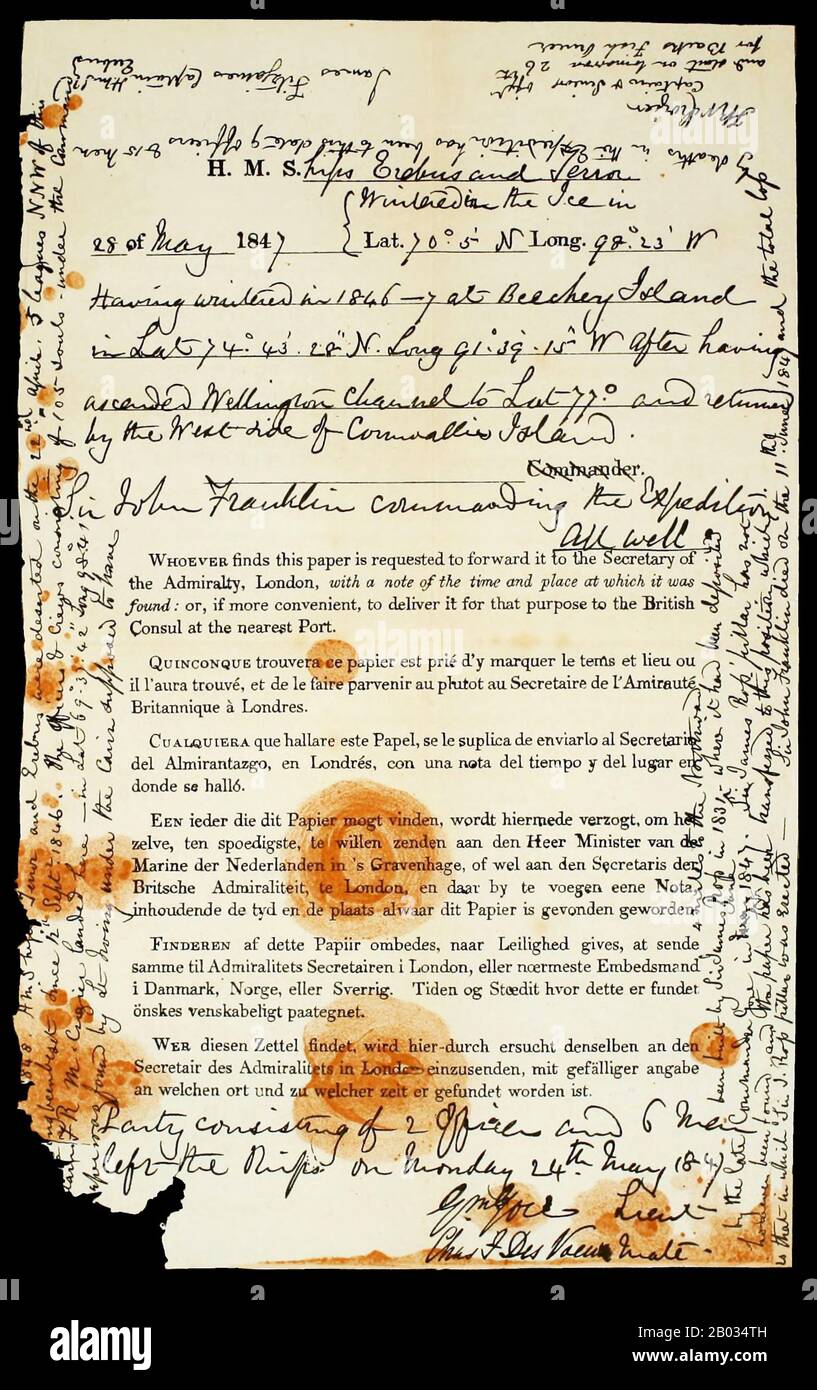 H. M. S.hips Erebus and Terror
{ Wintered in the Ice in
28 of May 1847 { Lat. 70° 5' N Long. 98° 23' W
Having wintered in 1846–7 at Beechey Island
in Lat 74° 43' 28" N. Long 91° 39' 15" W After having
ascended Wellington Channel to Lat 77° and returned
by the West side of Cornwallis Island.
Commander.
Sir John Franklin commanding the Expedition
All well
WHOEVER finds this paper is requested to forward it to the Secretary of
the Admiralty, London, with a note of the time and place at which it was
found: or, if more convenient, to deliver it for that purpose to the British
Consul at the nearest Port.
QUINCONQUE trouvera ce papier est prié d'y marquer le tems et lieu ou
il l'aura trouvé, et de le faire parvenir au plutot au Secretaire de l'Amirauté
Britannique à Londres.
CUALQUIERA que hallare este Papel, se le suplica de enviarlo al Secretario
del Almirantazgo, en Londrés, con una nota del tiempo y del lugar en
donde se halló.
EEN ieder die dit Papier mogt vinden, wordt hiermede verzogt, om het
zelve, ten spoedigste, te willen zenden aan den Heer Minister van de
Marine der Nederlanden in 's Gravenhage, of wel aan den Secretaris der
Britsche Admiraliteit, te London, en daar by te voegen eene Nota,
inhoudende de tyd en de plaats alwaar dit Papier is gevonden geworden
FINDEREN af dette Papiir ombedes, naar Leilighed gives, at sende
samme til Admiralitets Secretairen i London, eller nœrmeste Embedsmand
i Danmark, Norge, eller Sverrig. Tiden og Stœdit hvor dette er fundet
önskes venskabeligt paategnet.
WER diesen Zettel findet, wird hier-durch ersucht denselben an den
Secretair des Admiralitets in London einzusenden, mit gefälliger angabe
an welchen ort und zu welcher zeit er gefundet worden ist.
Party consisting of 2 Officers and 6 Men
left the Ships on Monday 24th May 1847
Gm Gore Lieut
Chas F Des Voeux Mate.
1848 HMShips Terror and Erebus were deserted on the 22nd April, 5 leagues NNW of this
been beset since 12th Septr 1846. The Officers & Crews consisting of 105 souls under the command
F R M Crozier landed here – in Lat 69° 37' 42" Long 98° 41'
paper was found by Lt Irving under the Cairn supposed to have
been built by Sir James Ross in 1831 where it had been deposited
4 miles to the Northward
by the late Commander Gore in June 1847. Sir James Ross' pillar has not
however been found and the paper has been transferred to this position which
is that in which Sir J. Ross pillar was erected – Sir John Franklin died on the 11th June 1847 and the total loss
by deaths in the Expedition has been to this date 9 officers & 15 men
James Fitzjames Captain HMS Erebus
Crozier
Captain & Senior Offr
and start on tomorrow 26th
for Backs Fish River
alamy
alamy
Image ID: 2B034TH
www.alamy.com